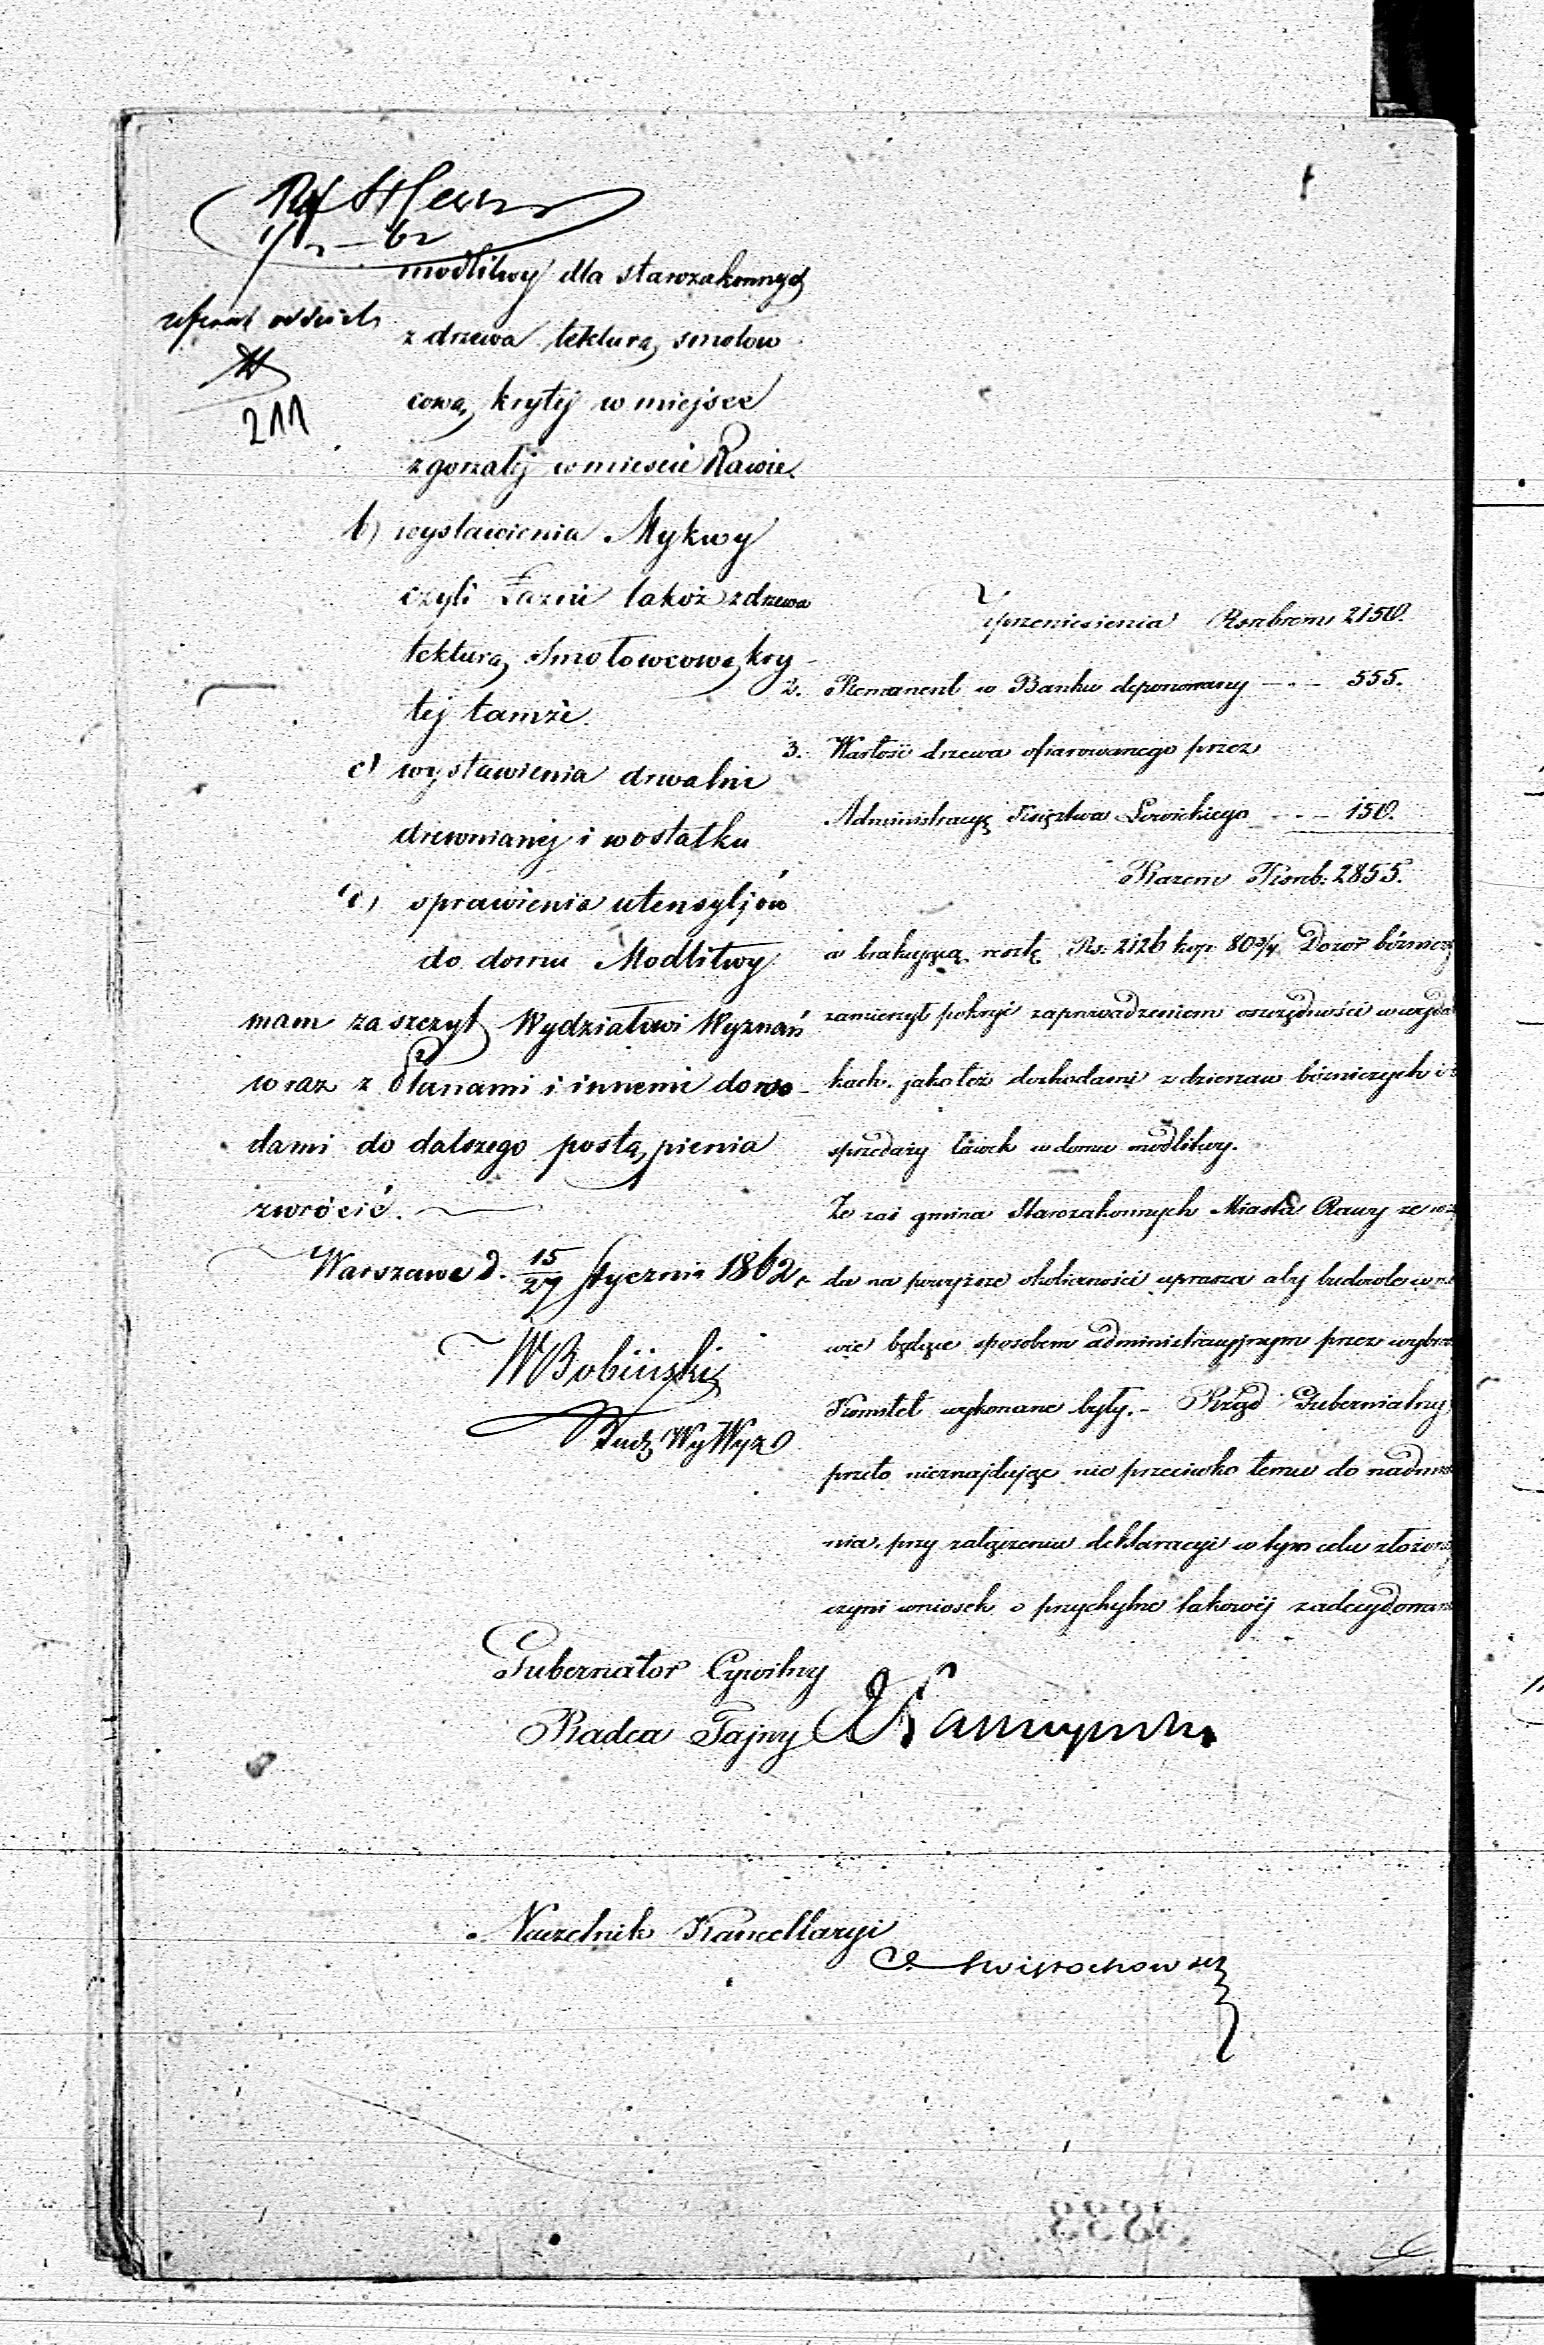 modlitwy dla starozakonnych
z drzewa tekturą smołow
cową krytéj w miejsce
zgorzałéj w mieście Rawie.
b) wystawienia Mykwy
czyli Łaźni takoż z drzewa
tekturą smołowcową kry-
tej tamże.
c) wystawienia drwalni
drewnianéj i w ostatku
d) sprawienia utensyljów
do domu Modlitwy
mam zaszczyt Wydziałowi Wyznań
wraz z Planami i innemi dowo-
dami do dalszego postąpienia
zwrócić.
Warszawa d. 15/27 Stycznia 1862 r.
WBobiński
211
Z przeniesienia Rsrebrem 2150.
2. Remanent w Banku deponowany - - - 555.
3. Wartość drzewa ofiarowanego przez
Administracyę Księztwa Łowickiego - - - 150.
Razem Rsreb. 2855.
a brakującą resztę Rs. 2126 kop. 80 3/4 Dozór bóżniczy
zamierzył pokryć zaprowadzeniem oszczędności w wydat
kach jakoteż dochodami z dzierzaw bóżniczych i z
sprzedaży ławek w domu modlitwy.
Że zaś gmina Starozakonnych Miasta Rawy ze wzg
du na powyższe okoliczności uprasza aby budowle w
wie będące sposobem administracyjnym przez wybra
Komitet wykonane były. - Rząd Gubernialny
przeto nieznajdując nic przeciwko temu do nadmie
nia, przy załączeniu deklaracyi w tym celu złożonéj
czyni wniosek o przychylne takowéj zadecydowan
Gubernator Cywilny
Radca Tajny
Naczelnik Kancellaryi